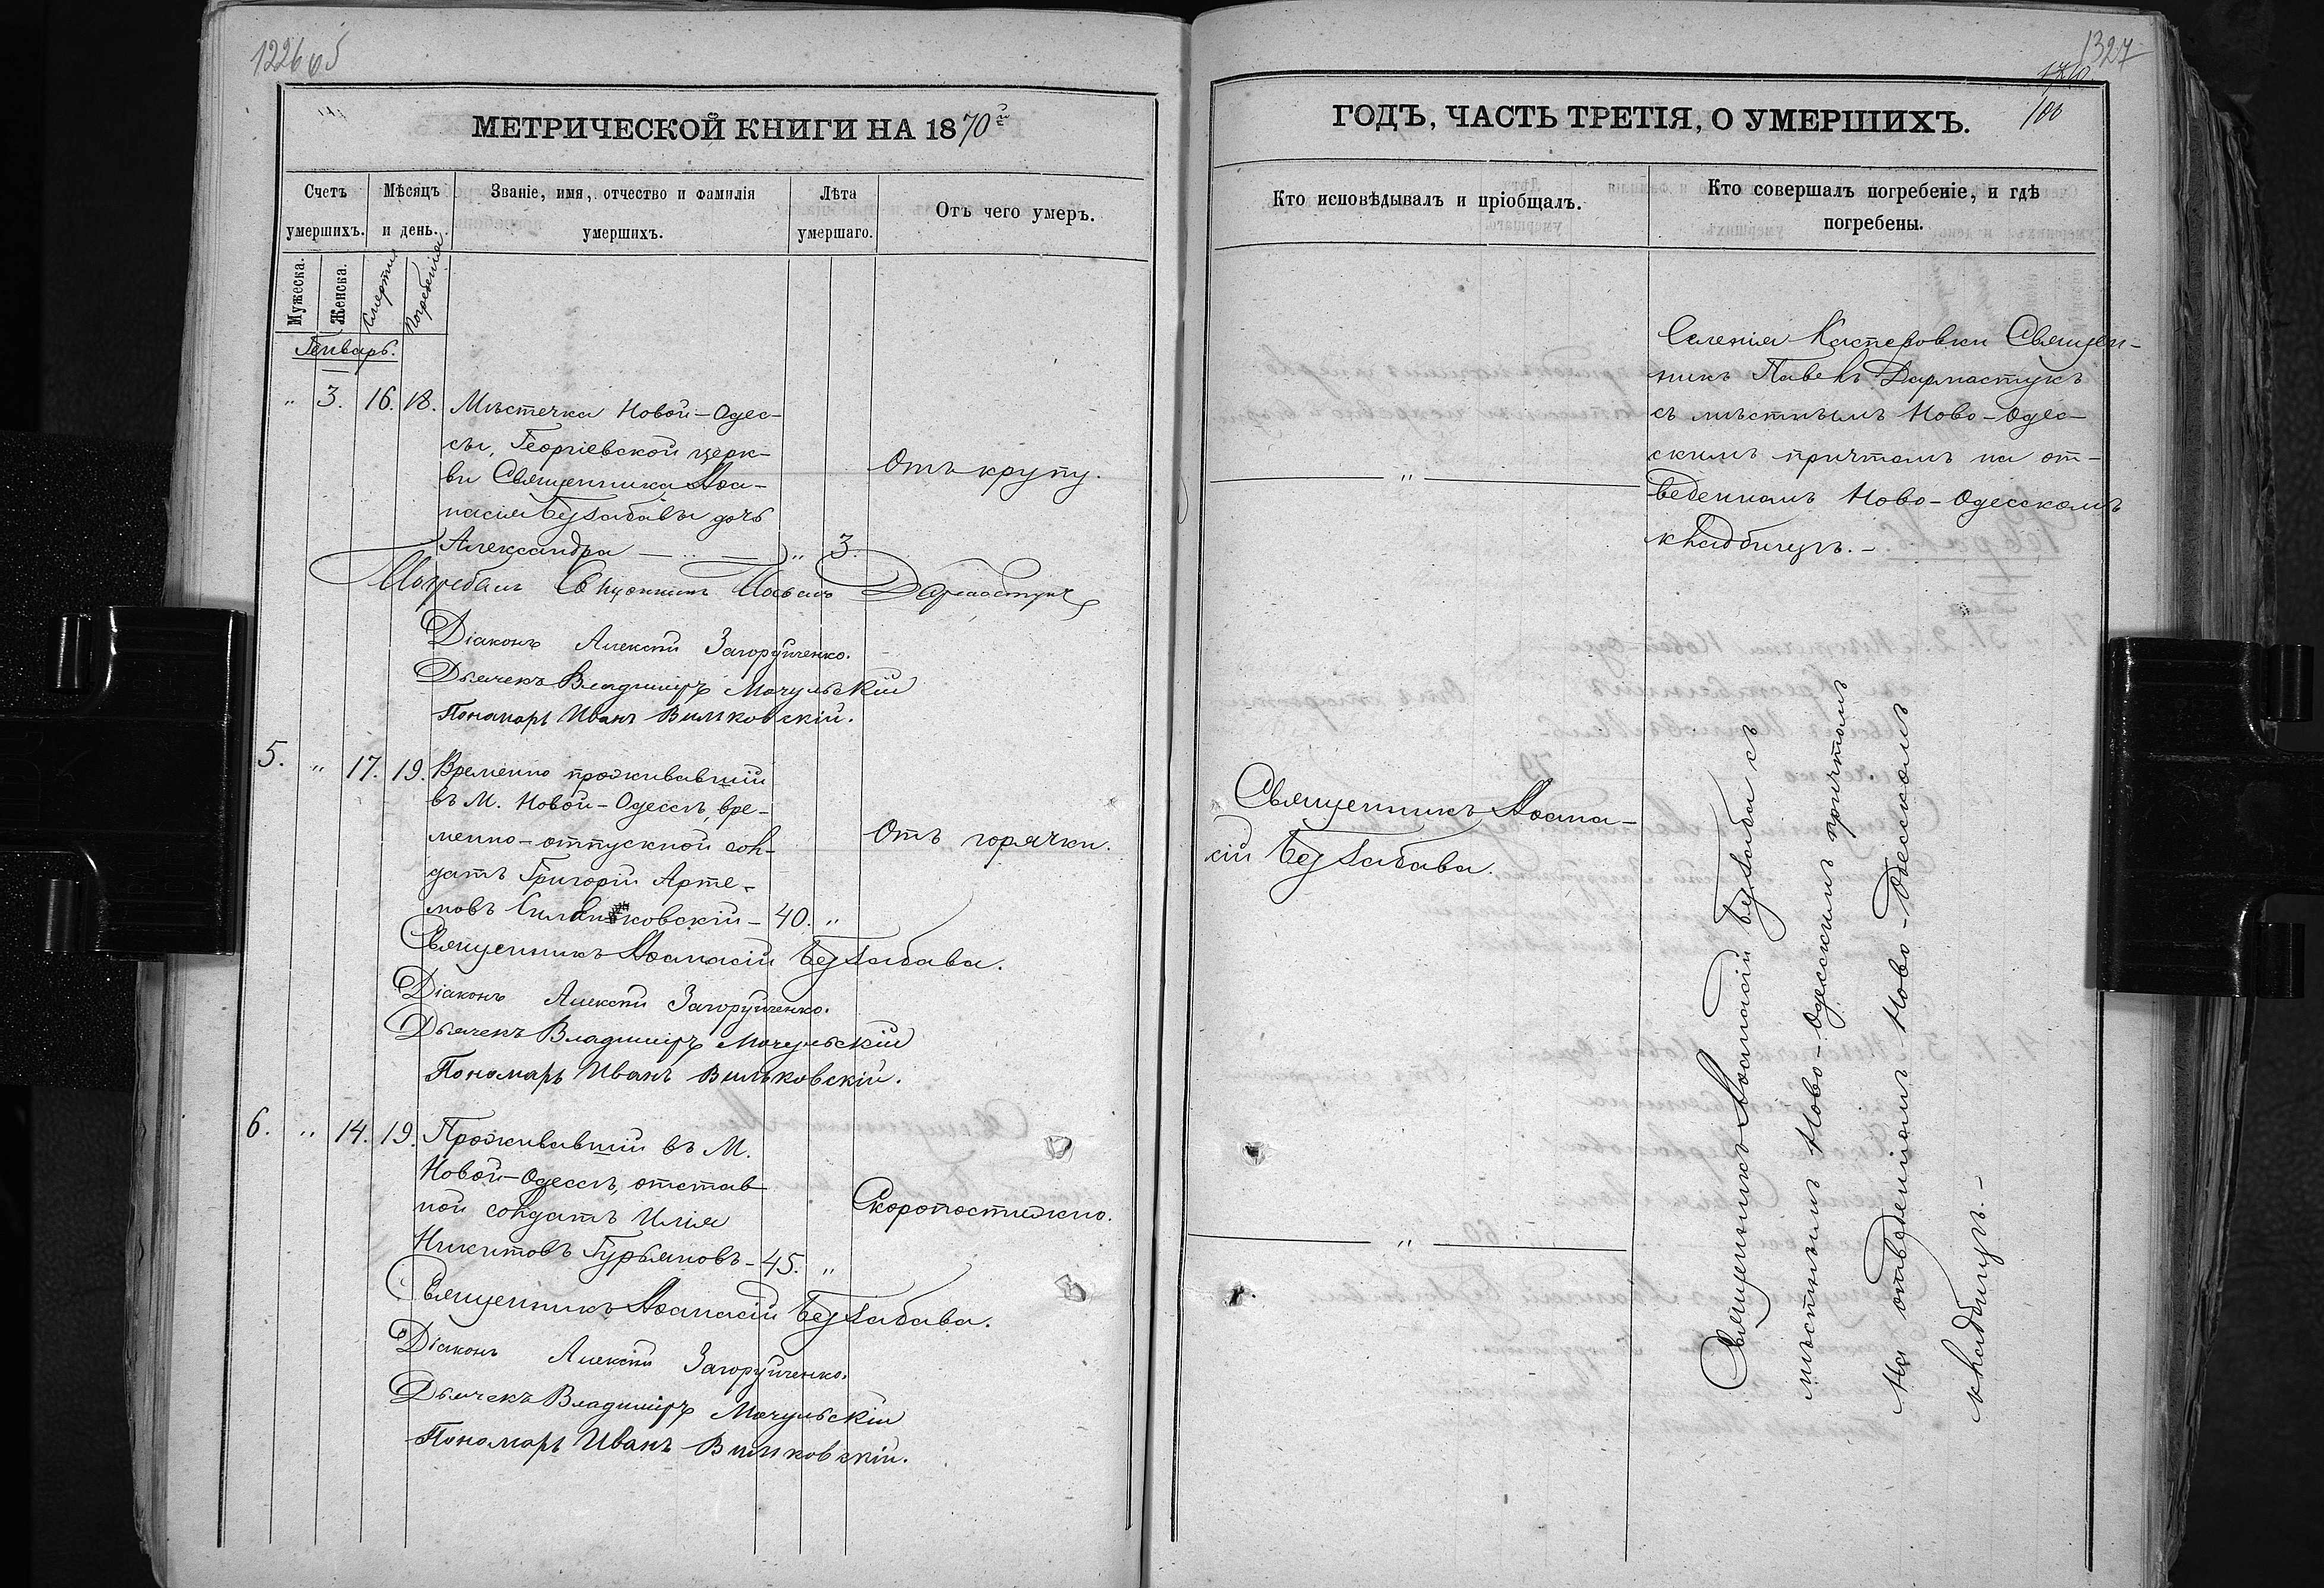 1226
МЕТРИЧЕСКОЙ КНИГИ НА 1870й
Счетъ умершихъ.
Мѣсяцъ и день.
Званіе, имя, отчество и фамилія умершихъ.
Лѣта умершаго.
Отъ чего умеръ.
Мужеска.
Женска.
Смерти
Погребенія
Генварь.
„ 3. 16. 18. Мѣстечка Новой-Одес-
сы, Георгіевской церк-
ви Священника Аѳа-
насія Безхабавы дочь
Александра — „ — „ 3.
Отъ крупу.
Погребалъ Священникъ Павелъ Дармастукъ
Діаконъ Алексѣй Загоруйченко.
Дьячекъ Владиміръ Мочульскій
Пономарь Иванъ Вильковскій.
5. „ 17. 19. Временно проживавшій
въ М. Новой-Одессѣ, вре-
менно-отпускной сол-
датъ Григорій Арте-
мовъ 40. „
Отъ горячки.
Священникъ Аѳанасій Безхабава.
Діаконъ Алексѣй Загоруйченко.
Дьячекъ Владиміръ Мочульскій
Пономарь Иванъ Вильковскій.
6. „ 14. 19. Проживавшій въ М.
Новой-Одессѣ, отстав-
ной солдатъ Илія
Никитовъ Гурьяновъ - 45. „
Скоропостижно.
Священникъ Аѳанасій Безхабава.
Діаконъ Алексѣй Загоруйченко.
Дьячекъ Владиміръ Мочульскій
Пономарь Иванъ Вильковскій.
1327
100
ГОДЪ, ЧАСТЬ ТРЕТІЯ, О УМЕРШИХЪ.
Кто исповѣдывалъ и пріобщалъ.
Кто совершалъ погребеніе, и гдѣ
погребены.
„
Селенія Касперовки Священ-
никъ Павелъ Дармастукъ
съ мѣстнымъ Ново-Одес-
скимъ причтомъ на от-
веденномъ Ново-Одесскомъ
кладбищѣ. -
Священникъ Аѳана-
сій Безхабава.
„
Священникъ Аѳанасій Безхабава съ
мѣстнымъ Ново-Одесскимъ причтомъ
на отведенномъ Ново-Одесскомъ
кладбищѣ. -